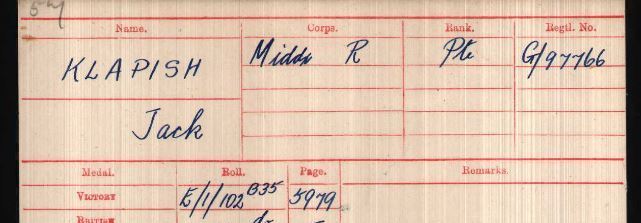 Name. Corps. Rank. Regtl. No.
KLAPISH Middx R Pte G/97766
Jack
Medal. Roll. Page. Remarks.
VICTORY E/1/102 B35 5979
BRITISH do